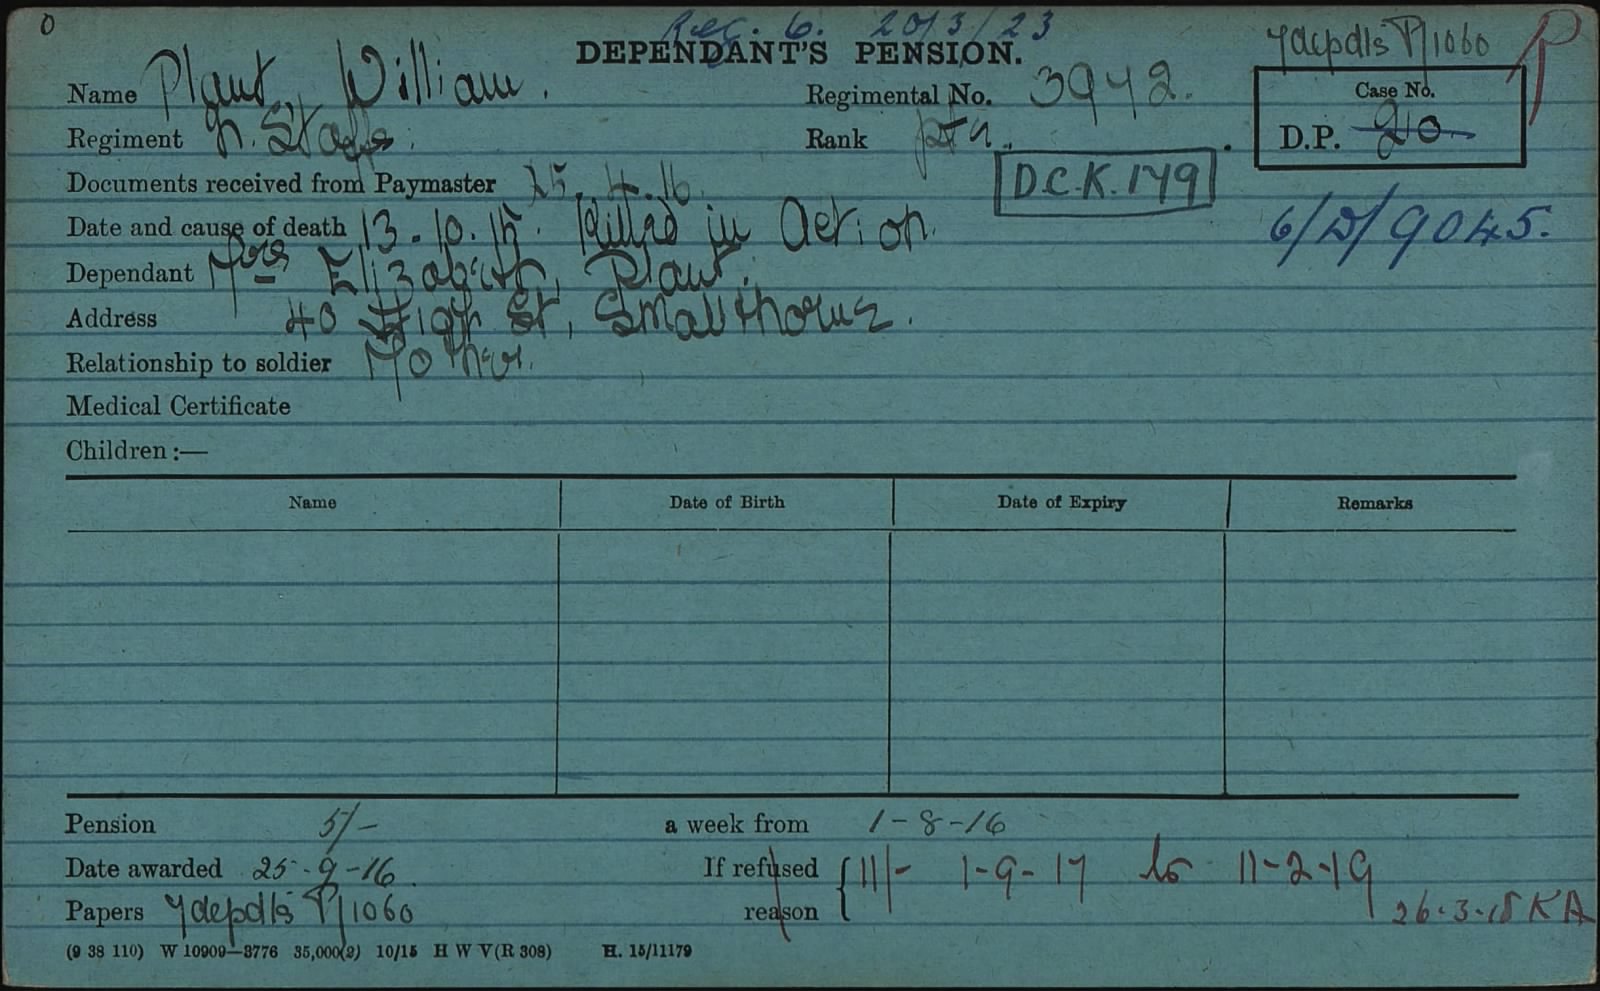 0
Rec. 6. 20/3/23
DEPENDANT'S PENSION.
7depdls P/1060
Name Plant, William.
Regimental No. 3942.
Case No.
D.P. 20
Regiment N. Staffs.
Rank Pte.
Documents received from Paymaster 25.4.16.
D.C.K. 179
Date and cause of death 13.10.15. Killed in Action.
6/D/9045.
Dependant Mrs Elizabeth Plant.
Address 40 High St, Smallthorne.
Relationship to soldier Mother.
Medical Certificate
Children :—
Name Date of Birth Date of Expiry Remarks
Pension 5/- a week from 1-8-16
Date awarded 25-9-16. If refused reason 11/- 1-9-17 to 11-2-19
Papers 7depdls P/1060
26-3-18 KA
(9 38 110) W 10909—3776 35,000(2) 10/15 H W V(R 308) H. 15/11179